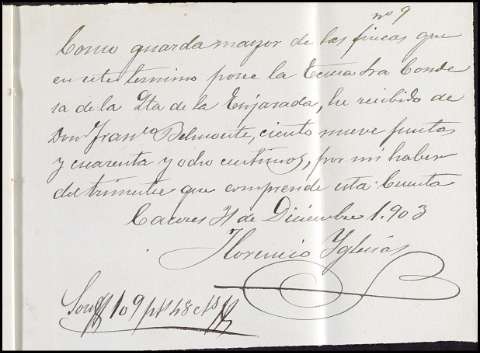 nº 9
Como guarda mayor de las fincas que
en este termino posee la Ecma Sra Conde
sa de la Qta de la Enjarada, he recibido de
Don Franco Belmonte, ciento nueve puntas
y cuarenta y ocho centimos, por mi haber
del trimestre que comprende esta Cuenta
Caceres 31 de Diciembre 1.903
Florencio Yglesias
Son 109 pts 48 cts